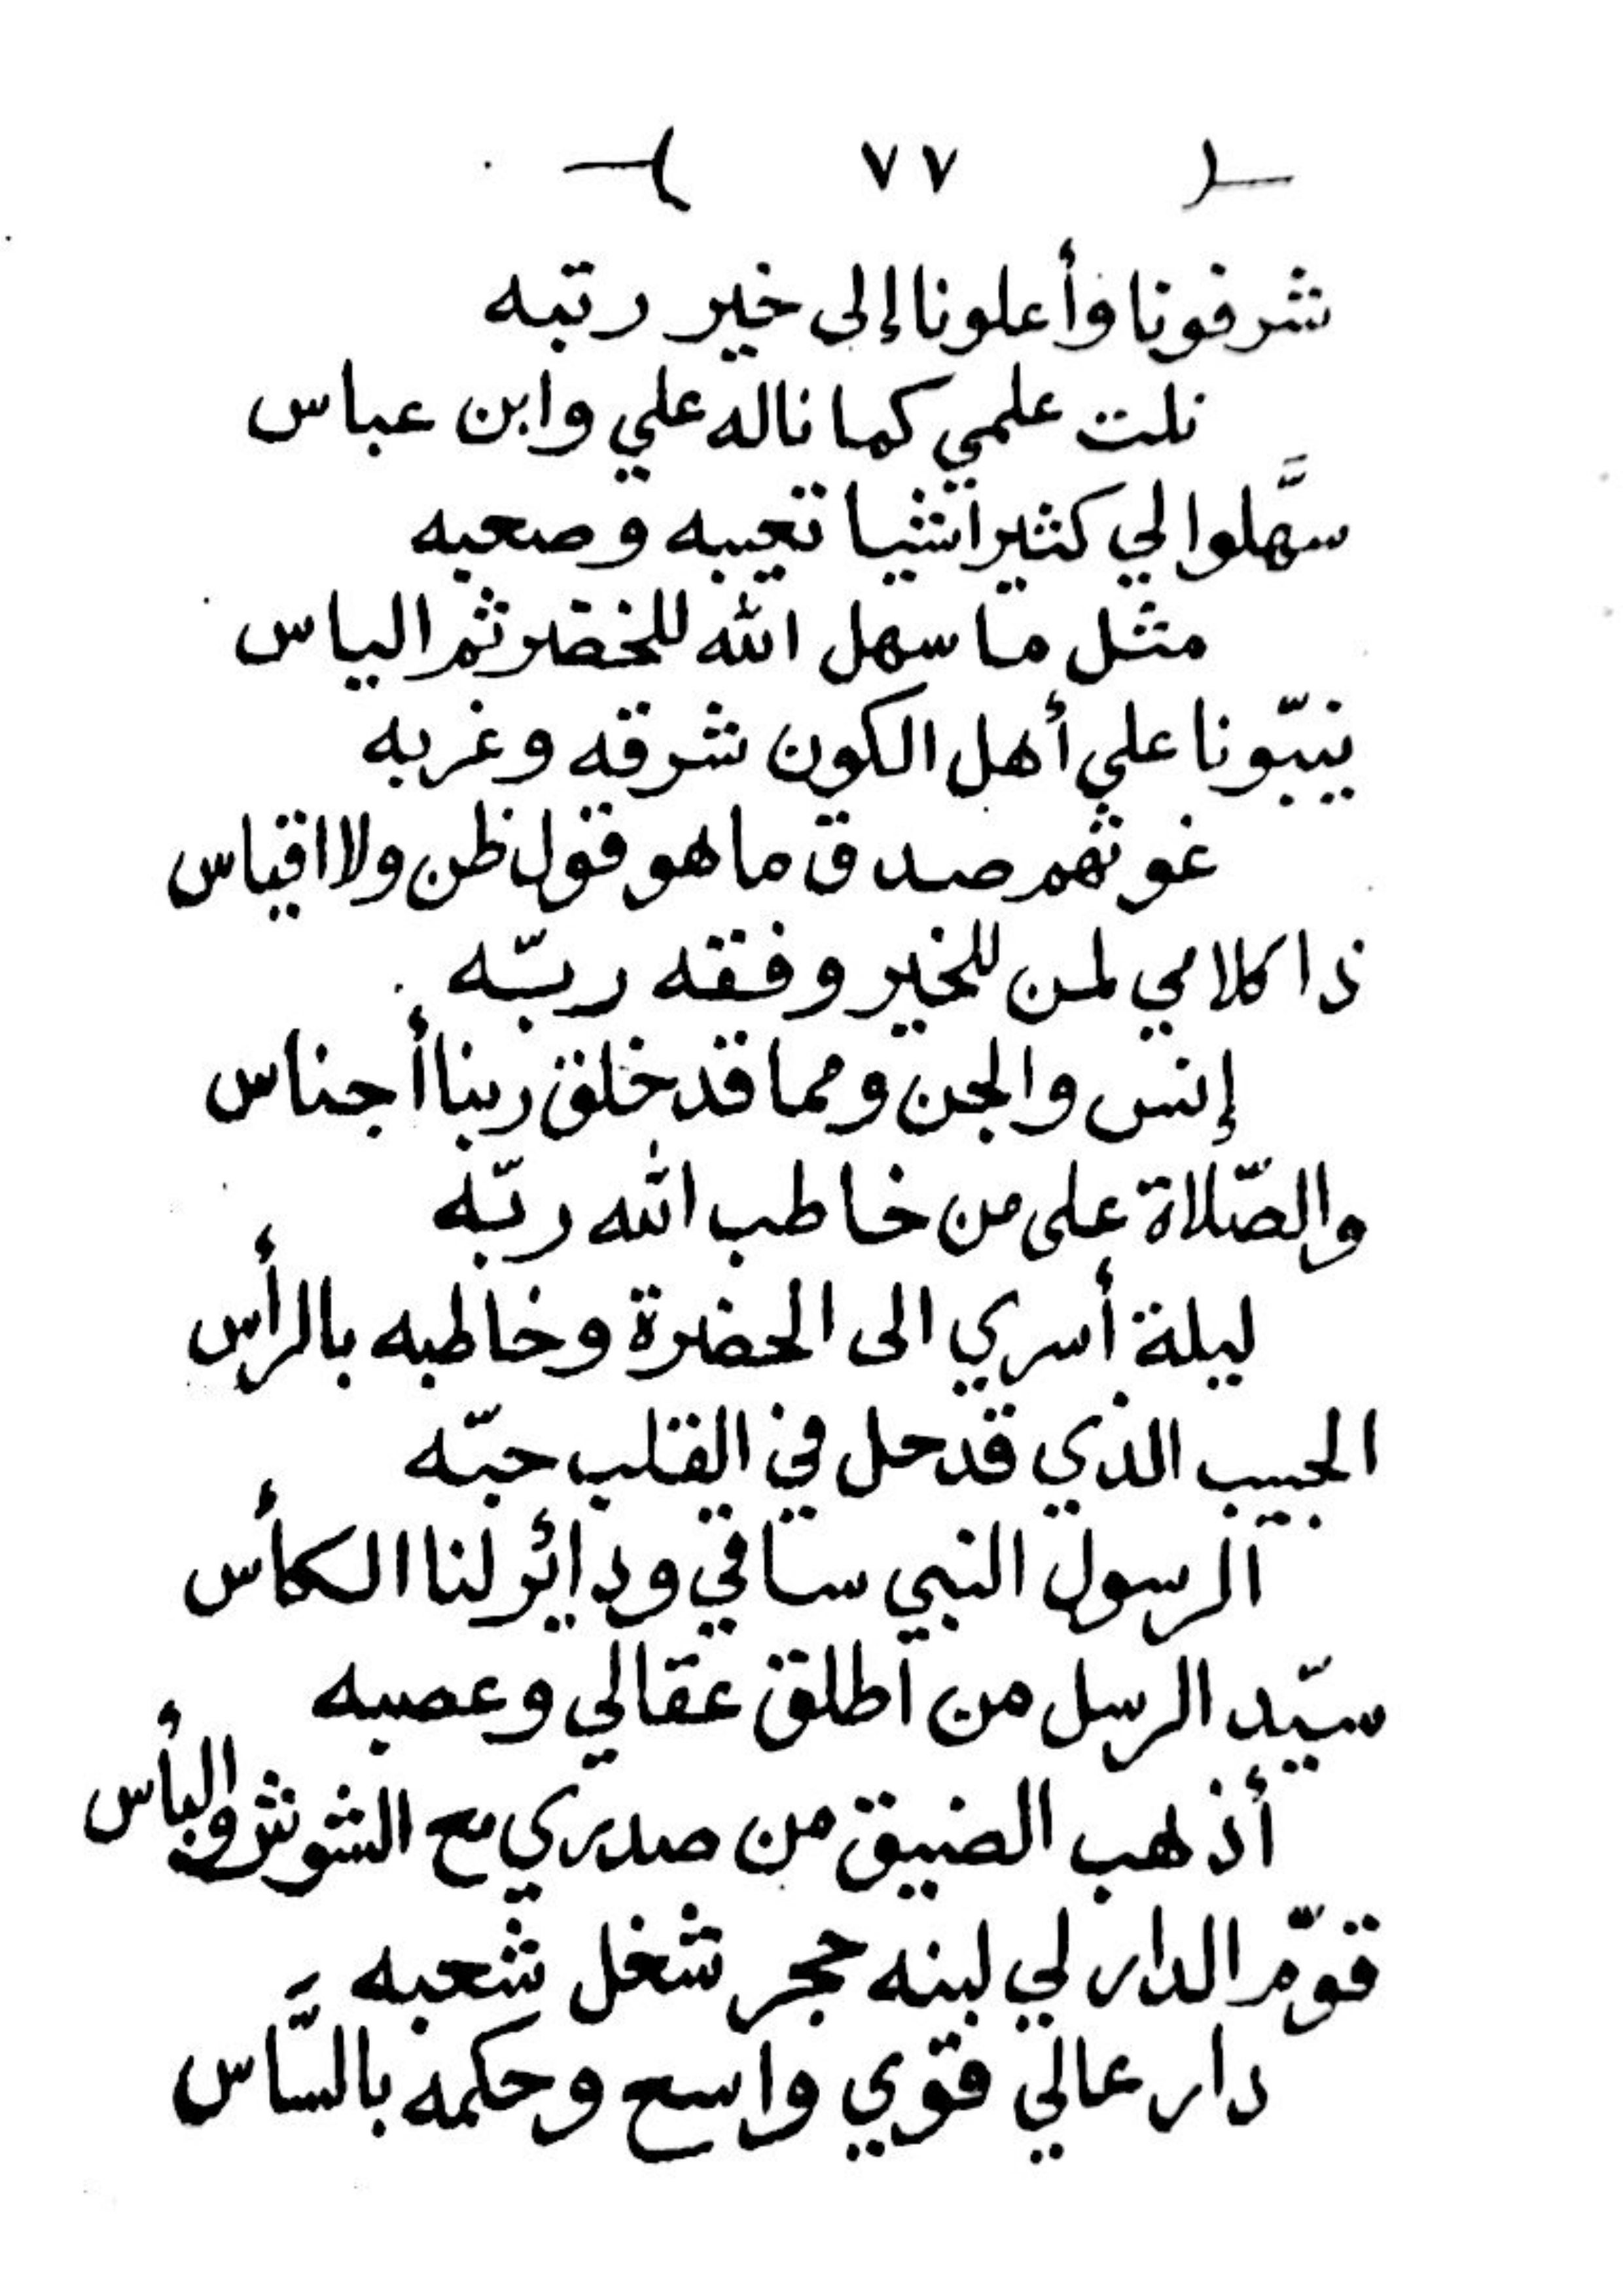 ٧٧
شرفونا وأعلونا إلى خير رتبه
نلت علمي كما ناله علي وابن عباس
سهَّلوا لي كثير اشيا تعيبه وصعبه
مثل ما سهل الله للخضر ثم الياس
ينبّونا على أهل الكون شرقه وغربه
غوثهم صدق ما هو قول ظن ولا اقياس
ذا كلامي لمن للخير وفقه ربّه
إنس والجن ومما قد خلق ربنا أجناس
والصّلاة على من خاطب الله ربّه
ليلة أسري الى الحضرة وخاطبه بالرأس
الحبيب الذي قد حل في القلب حبّه
الرسول النبي ساقي ودائر لنا الكأس
سيّد الرسل من اطلق عقالي وعصبه
أذهب الضيق من صدري مع الشوش والبأس
قوّم الدار لي لبنه حجر شغل شعبه
دار عالي قوي واسع وحكمه بالسَّاس